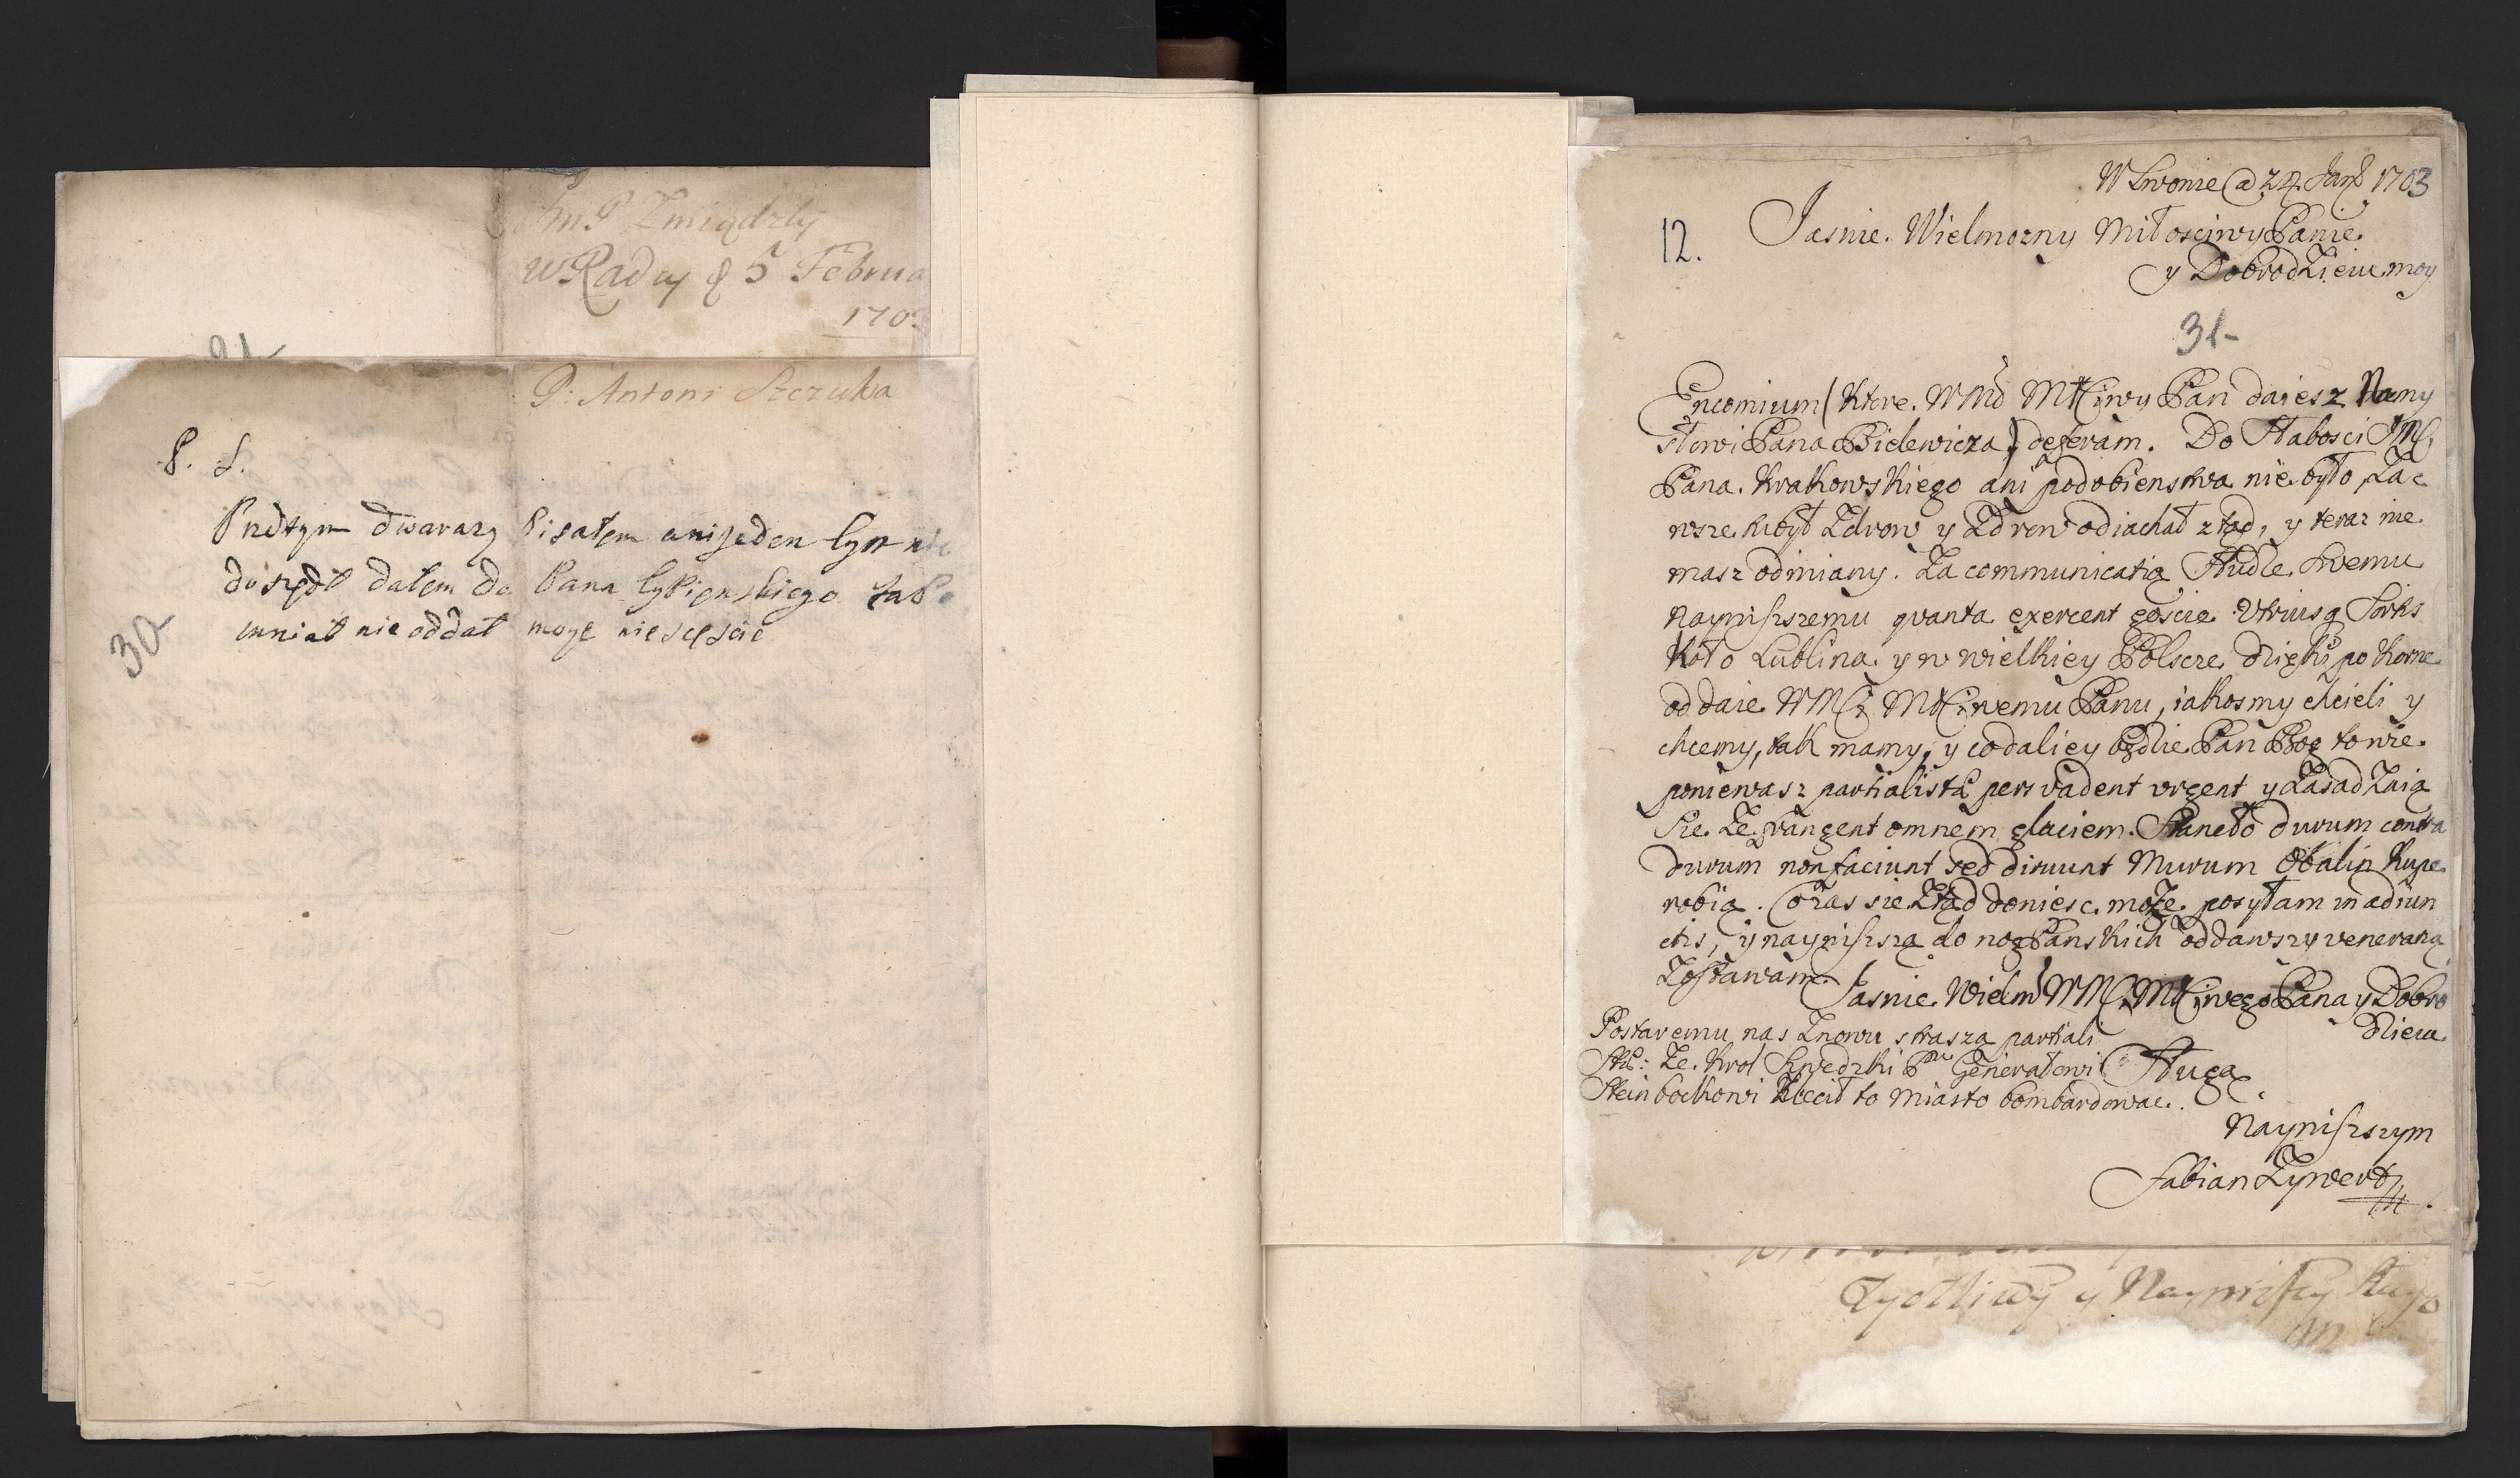 JmP Zmiądzky
w Radcy d 5 Februa
170
P: Antoni Szczuka
P. S.
Prdtym dwarazy Pisałem anijeden lyst nie
doszędł dałem do Pana
mniał nie oddał moye niesczęscie
30-
W Lwowie @ 24 Jan 1703
12.
Jasnie Wielmozny Miłosciwy Panie
y Dobrodzieiu moy
31-
Encomium (Ktore WMć Mćiwy Pan daiesz Namy
słowi Pana Bielewicza) deferam. Do Słabosci JMć
Pana Krakowskiego ani podobienstwa nie było Za
wsze był Zdrow y Zdrow odiachał ztąd, y teraz nie
masz odmiany. Za communicatią Słudze swemu
Naynisszemu quanta exercent goscie Utriusq Sortis
Koło Lublina y w wielkiey Polscze dzięki po Korne
oddaie WMći Mćiwemu Panu, iakosmy chcieli y
chcemy, tak mamy, y co daliey będzie Pan Bog to wie
poniewasz partialistæ persvadent urgent y Zasadzaią
sie Ze frangent omnem glaciem. Stanęło durum contra
durum non faciunt sed diruunt Murum Obalin Kupe
robią. Coras sie Ztąd doniesc moze posyłam in adiun
ctis, y naynisszą do nog Panskich oddawszy veneratią
Zostawam
Jasnie Wielm WMć Mćiwego Pana y Dobro
dzieia
Postaremu nas Znowu straszą partiali
stæ: Ze Krol Szwedzki Pnu Generałowi
Sługą
Steinbockowi Zlecił to Miasto bombardowac.
Naynisszym
Fabian Zywert
Zyczliwy y Naynizszy Sługa